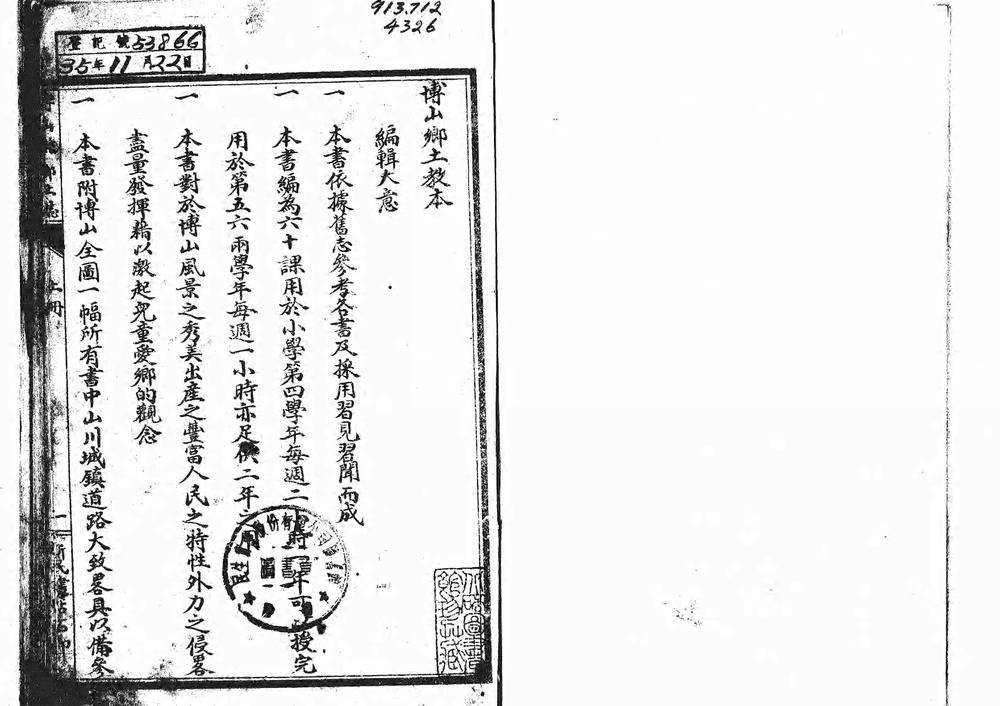 913.712
4326
登記號53866
35年11月22日
博山鄉土教本
編輯大意
一 本書依據舊志參考各書及採用習見習聞而成
一 本書編為六十課用於小學第四學年每週二小時一年可以授完
用於第五六兩學年每週一小時亦足供二年之用
一 本書對於博山風景之秀美出產之豐富人民之特性外力之侵畧
盡量發揮藉以激起兒童愛鄉的觀念
一 本書附博山全圖一幅所有書中山川城鎮道路大致畧具以備參
上冊
一
圖書